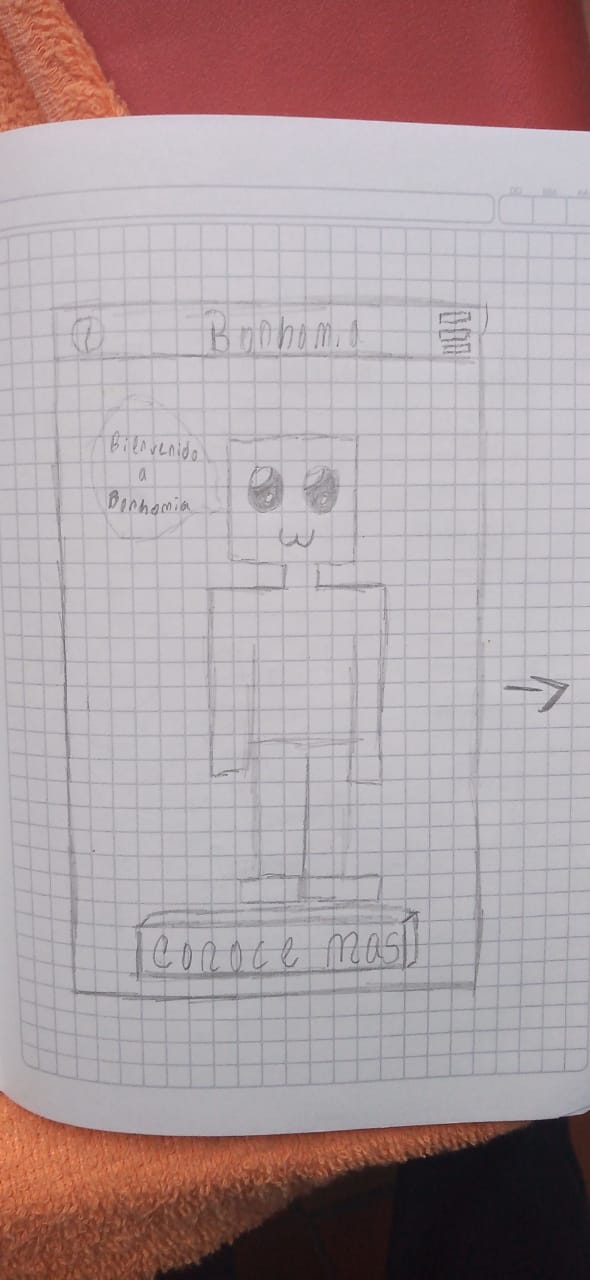 Bonhomia
Bienvenido
a
Bonhomia
conoce mas